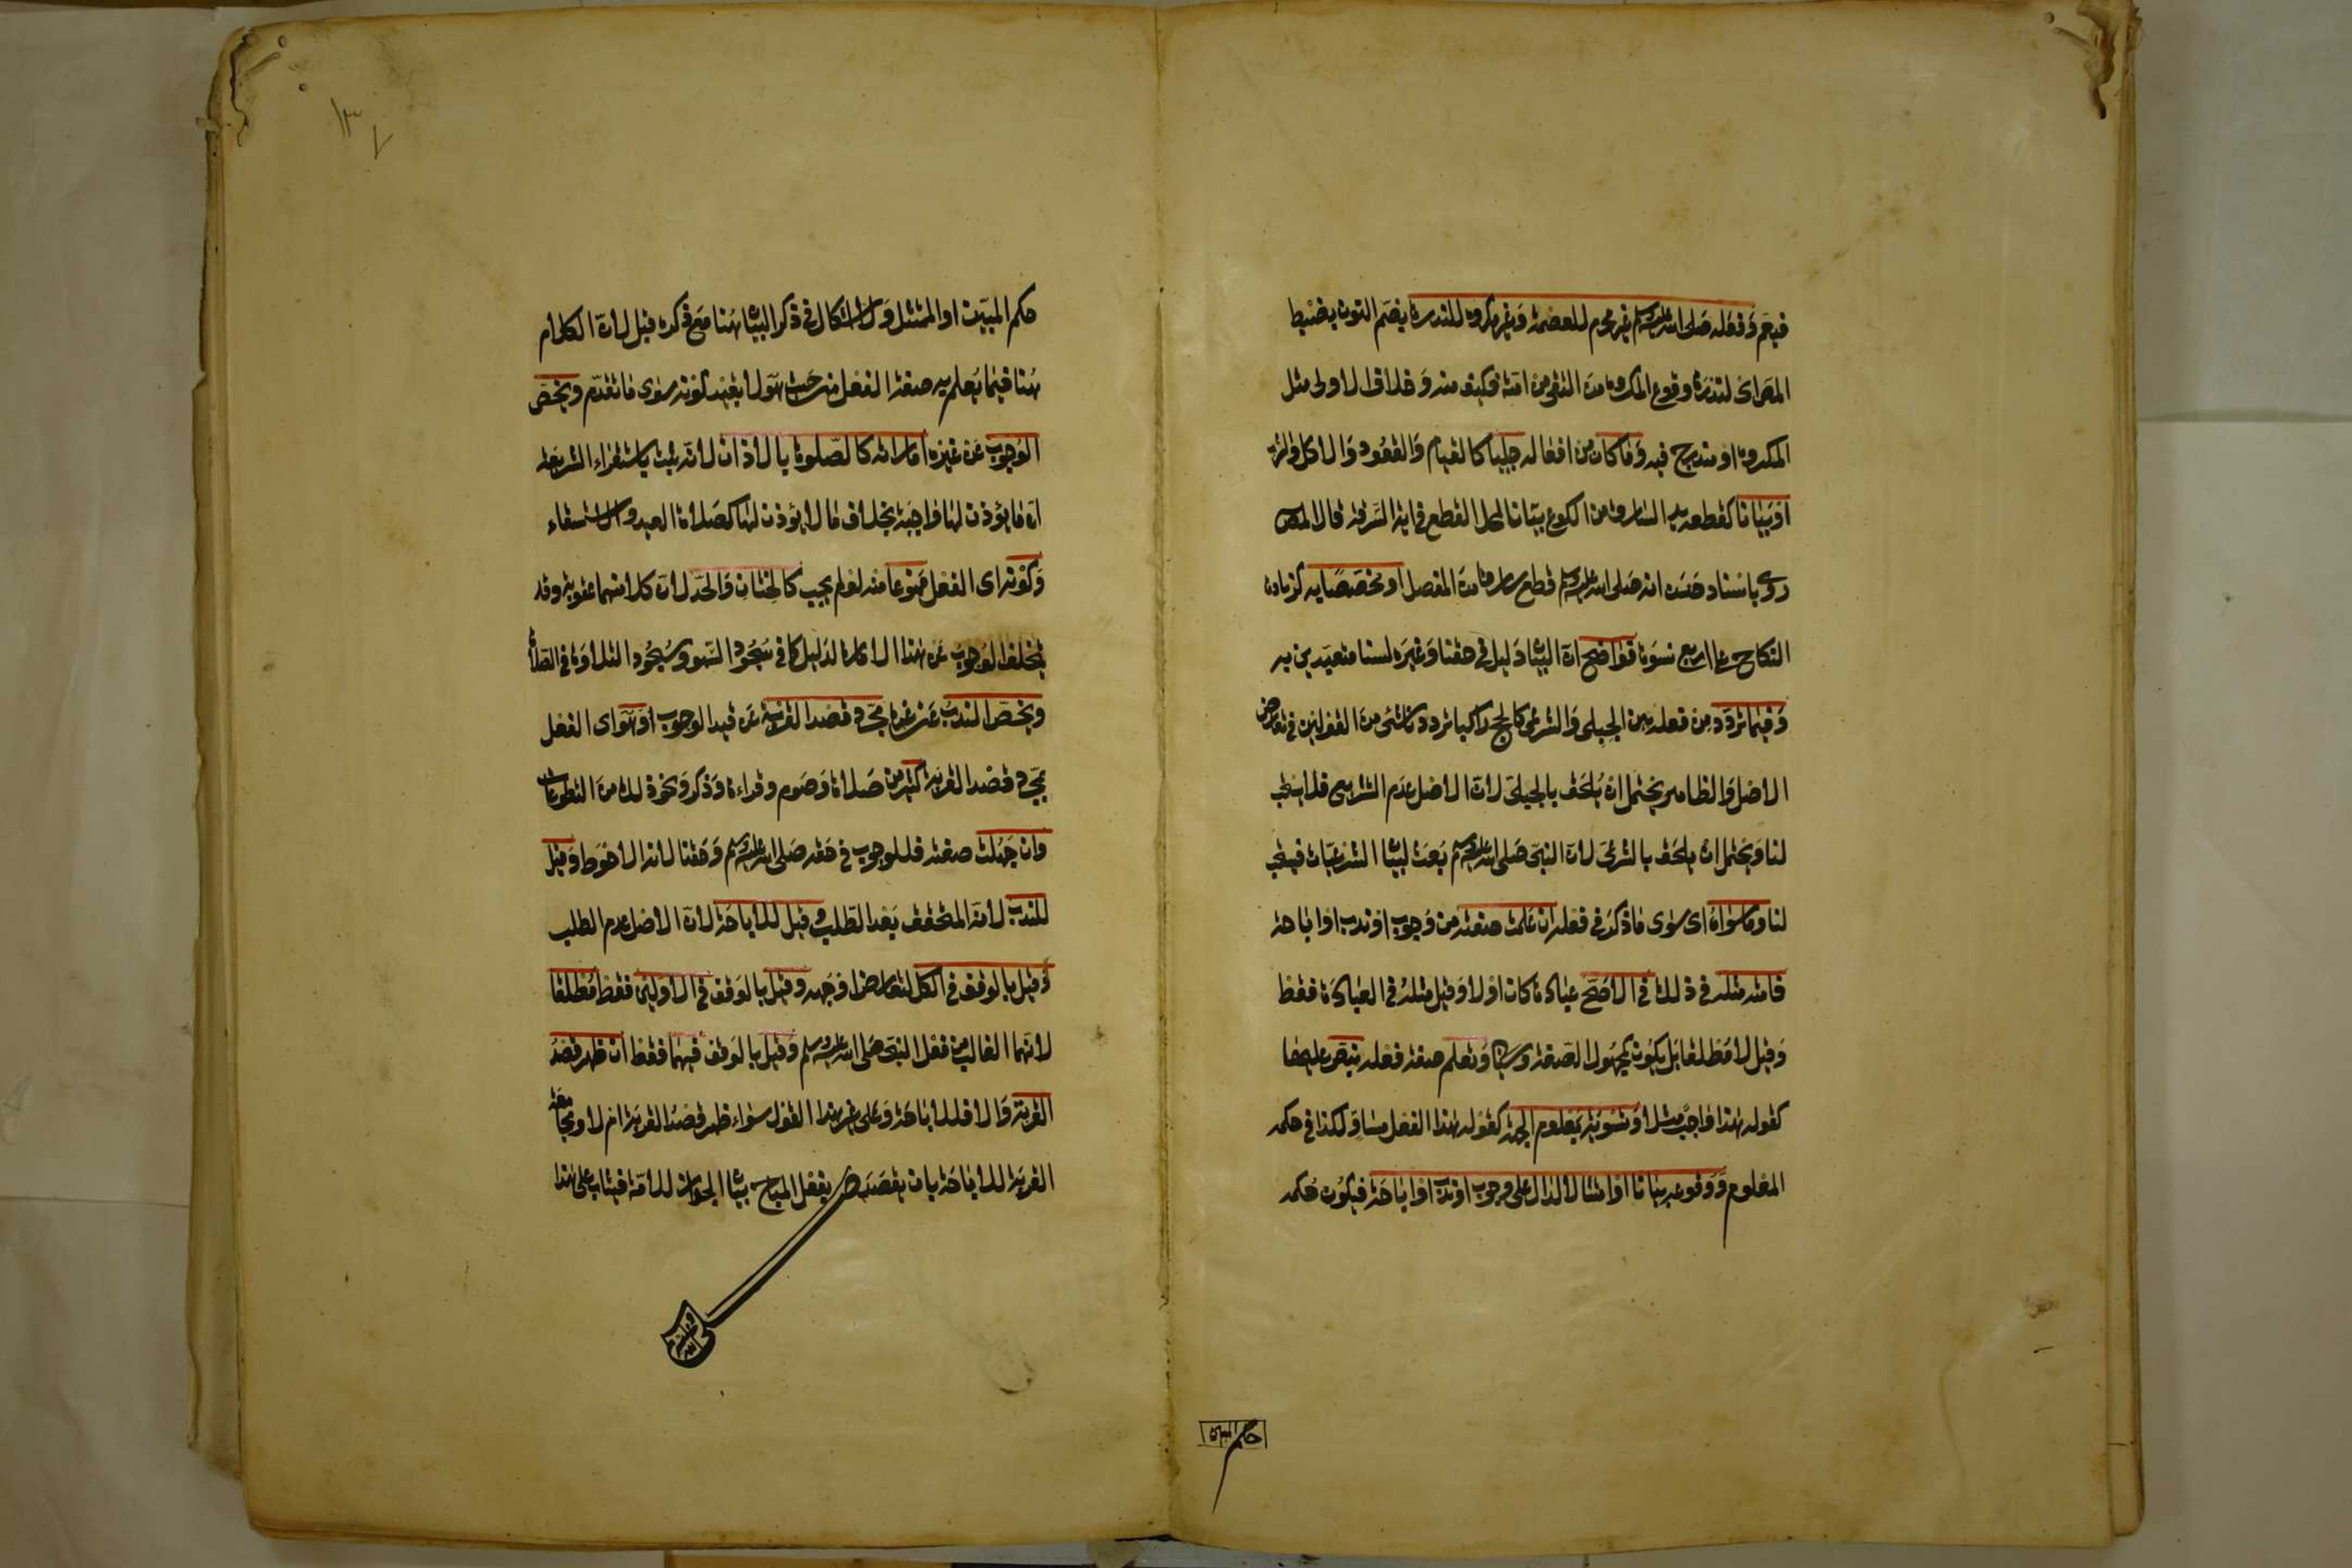 فيعم وفعله صلى الله عليه وسلم غير محرم للعصمة وغير مكروه للندرة بضم النون بضبط
المص اى لندرة وقوع المكروه من التقى من امته فكيف منه وخلاف الاولى مثل
المكروه او مندرج فيه وما كان من افعاله جبليا كالقيام والقعود والاكل والشرب
او بيانا كقطعه يد السارق من الكوع بيانا لمحل القطع في اية السرقة قال المص
روى باسناد حسن انه صلى الله عليه وسلم قطع سارقا من المفصل او مخصصا به كزيادة
النكاح على اربع نسوة فواضح ان البيان دليل في حقنا وغيره لسنا متعبدين به
وفيما تردد من فعله بين الجبلي والشرعي كالحج راكبا تردد ناشئ من القولين في تعارض
الاصل والظاهر يحتمل ان يلحق بالجبلي لان الاصل عدم التشريع فلا يستحب
لنا ويحتمل ان يلحق بالشرعي لان النبي صلى الله عليه وسلم بعث لبيان الشرعيات فيستحب
لنا وما سواه اى سوى ما ذكر في فعله ان علمت صفته من وجوب او ندب او اباحة
فامته مثله في ذلك في الاصح عبادة كان او لا وقيل مثله في العبادة فقط
وقيل لا مطلقا بل يكون كمجهول الصفة وسياتي وتعلم صفة فعله بنص عليها
كقوله هذا واجب مثلا وتسوية بمعلوم الجهة كقوله هذا الفعل مساو لكذا في حكمه
المعلوم ووقوعه بيانا او امتثالا لدال على وجوب او ندب او اباحة فيكون حكمه
حكم المبين
١٣٧
حكم المبين او الممتثل ولا اشكال في ذكر البيان هنا مع ذكره قبل لان الكلام
هنا فيما يعلم به صفة الفعل من حيث هو لا بقيد كونه سوى ما تقدم ويخص
الوجوب عن غيره اماراته كالصلوة بالاذان لانه ثبت باستقراء الشريعة
ان ما يؤذن لها واجبة بخلاف ما لا يؤذن لها كصلاة العيد والاستسقاء
وكونه اى الفعل ممنوعا منه لو لم يجب كالختان والحد لان كلا منهما عقوبة وقد
يتخلف الوجوب عن هذا الامارة لدليل كما في سجود السهو وسجود التلاوة في الصلاة
ويخص الندب عن غيره مجرد قصد القربة عن قيد الوجوب وهو اى الفعل
بمجرد قصد القربة كثير من صلاة وصوم وقراءة وذكر ونحو ذلك من التطوعات
وان جهلت صفته فللوجوب في حقه صلى الله عليه وسلم وحقنا لانه الاحوط وقيل
للندب لانه المتحقق بعد الطلب وقيل للاباحة لان الاصل عدم الطلب
وقيل بالوقف في الكل لتعارض اوجهه وقيل بالوقف في الاولين فقط مطلقا
لانهما الغالب من فعل النبي صلى الله عليه وسلم وقيل بالوقف فيهما فقط ان ظهر قصد
القربة والا فللاباحة وعلى غير هذا القول سواء ظهر قصد القربة ام لا ومجامعة
القربة للاباحة بان يقصد بفعل المباح بيان الجواز للامة فيثاب على هذا